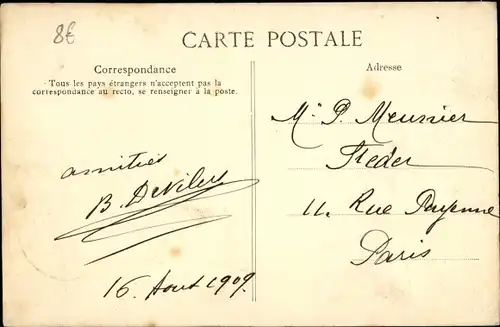 8€
CARTE POSTALE
Correspondance
Tous les pays étrangers n'acceptent pas la
correspondance au recto, se renseigner à la poste.
Adresse
amitiés
B. Devilers
16 Aout 1909.
Mr P. Meunier
11 Rue Payenne
Paris